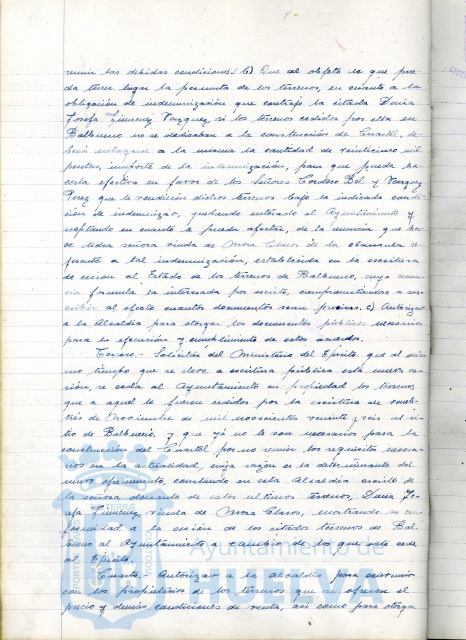 reunir las debidas condiciones. b) Que al objeto de que pue-
da tener lugar la permuta de los terrenos, en cuanto a la
obligación de indemnización que contrajo la citada Doña
Josefa Jimenez Vazquez, si los terrenos cedidos por ella en
Balbueno no se dedicaban a la construcción de Cuartel, de-
berá entregarse a la misma la cantidad de veinticinco mil
pesetas, importe de la indemnización, para que pueda ha-
cerla efectiva en favor de los Señores Cordero Bel y Vazquez
Perez que le vendieron dichos terrenos bajo la indicada condi-
ción de indemnizar, quedando enterado el Ayuntamiento y
aceptando en cuanto le pueda afectar, de la renuncia que ha-
ce dicha señora viuda de Mora Claros de la clausula re-
ferente a tal indemnización, establecida en la escritura
de cesion al Estado de los terrenos de Balbueno, cuya renun-
cia formula la interesada por escrito, comprometiendose a sus-
cribir al efecto cuantos documentos sean precisos. c) Autorizar
a la Alcaldía para otorgar los documentos públicos necesarios
para la ejecución y cumplimiento de estos acuerdos.
Tercero.- Solicitar del Ministerio del Ejército, que al mis-
mo tiempo que se eleve a escritura pública esta nueva ce-
sión, se ceda al Ayuntamiento en propiedad los terrenos
que a aquel le fueron cedidos por la escritura de veinti-
trés de Noviembre de mil novecientos veinte y seis al si-
tio de Balbueno, y que ya no le son necesarios para la
construcción del Cuartel por no reunir los requisitos necesa-
rios en la actualidad, cuya razon es la determinante del
nuevo ofrecimiento, constando en esta Alcaldía escrito de
la señora donante de estos ultimos terrenos, Doña Jo-
sefa Jimenez, viuda de Mora Claros, mostrando su con-
formidad a la cesión de los citados terrenos de Bal-
bueno al Ayuntamiento a cambio de los que este cede
al Ejército.
Cuarto.- Autorizar a la Alcaldía para convenir
con los propietarios de los terrenos que se ofrecen el
precio y demás condiciones de venta, así como para otorgar
Ayuntamiento de
HUELVA